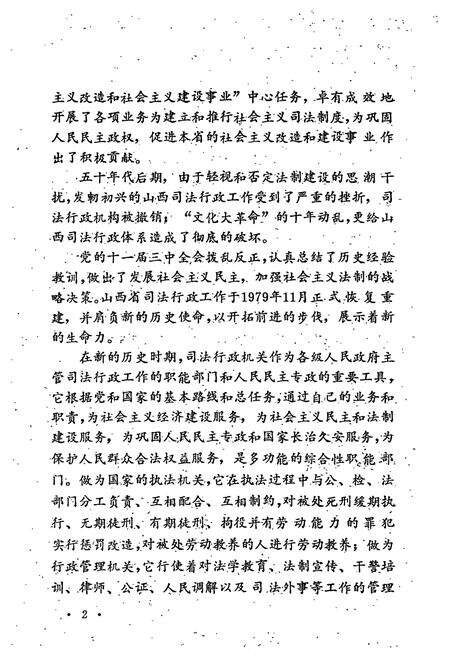 主义改造和社会主义建设事业”中心任务，卓有成效地
开展了各项业务为建立和推行社会主义司法制度，为巩固
人民民主政权，促进本省的社会主义改造和建设事业作
出了积极贡献。
五十年代后期，由于轻视和否定法制建设的思潮干
扰，发轫初兴的山西司法行政工作受到了严重的挫折，司
法行政机构被撤销；“文化大革命”的十年动乱，更给山
西司法行政体系造成了彻底的破坏。
党的十一届三中全会拨乱反正，认真总结了历史经验
教训，做出了发展社会主义民主，加强社会主义法制的战
略决策。山西省司法行政工作于1979年11月正式恢复重
建，并肩负新的历史使命，以开拓前进的步伐，展示着新
的生命力。
在新的历史时期，司法行政机关作为各级人民政府主
管司法行政工作的职能部门和人民民主专政的重要工具，
它根据党和国家的基本路线和总任务，通过自己的业务和
职责，为社会主义经济建设服务，为社会主义民主和法制
建设服务，为巩固人民民主专政和国家长治久安服务，为
保护人民群众合法权益服务，是多功能的综合性职能部
门。做为国家的执法机关，它在执法过程中与公、检、法
部门分工负责、互相配合、互相制约，对被处死刑缓期执
行、无期徒刑、有期徒刑、拘役并有劳动能力的罪犯
实行惩罚改造，对被处劳动教养的人进行劳动教养；做为
行政管理机关，它行使着对法学教育、法制宣传、干警培
训、律师、公证、人民调解以及司法外事等工作的管理
· 2 ·